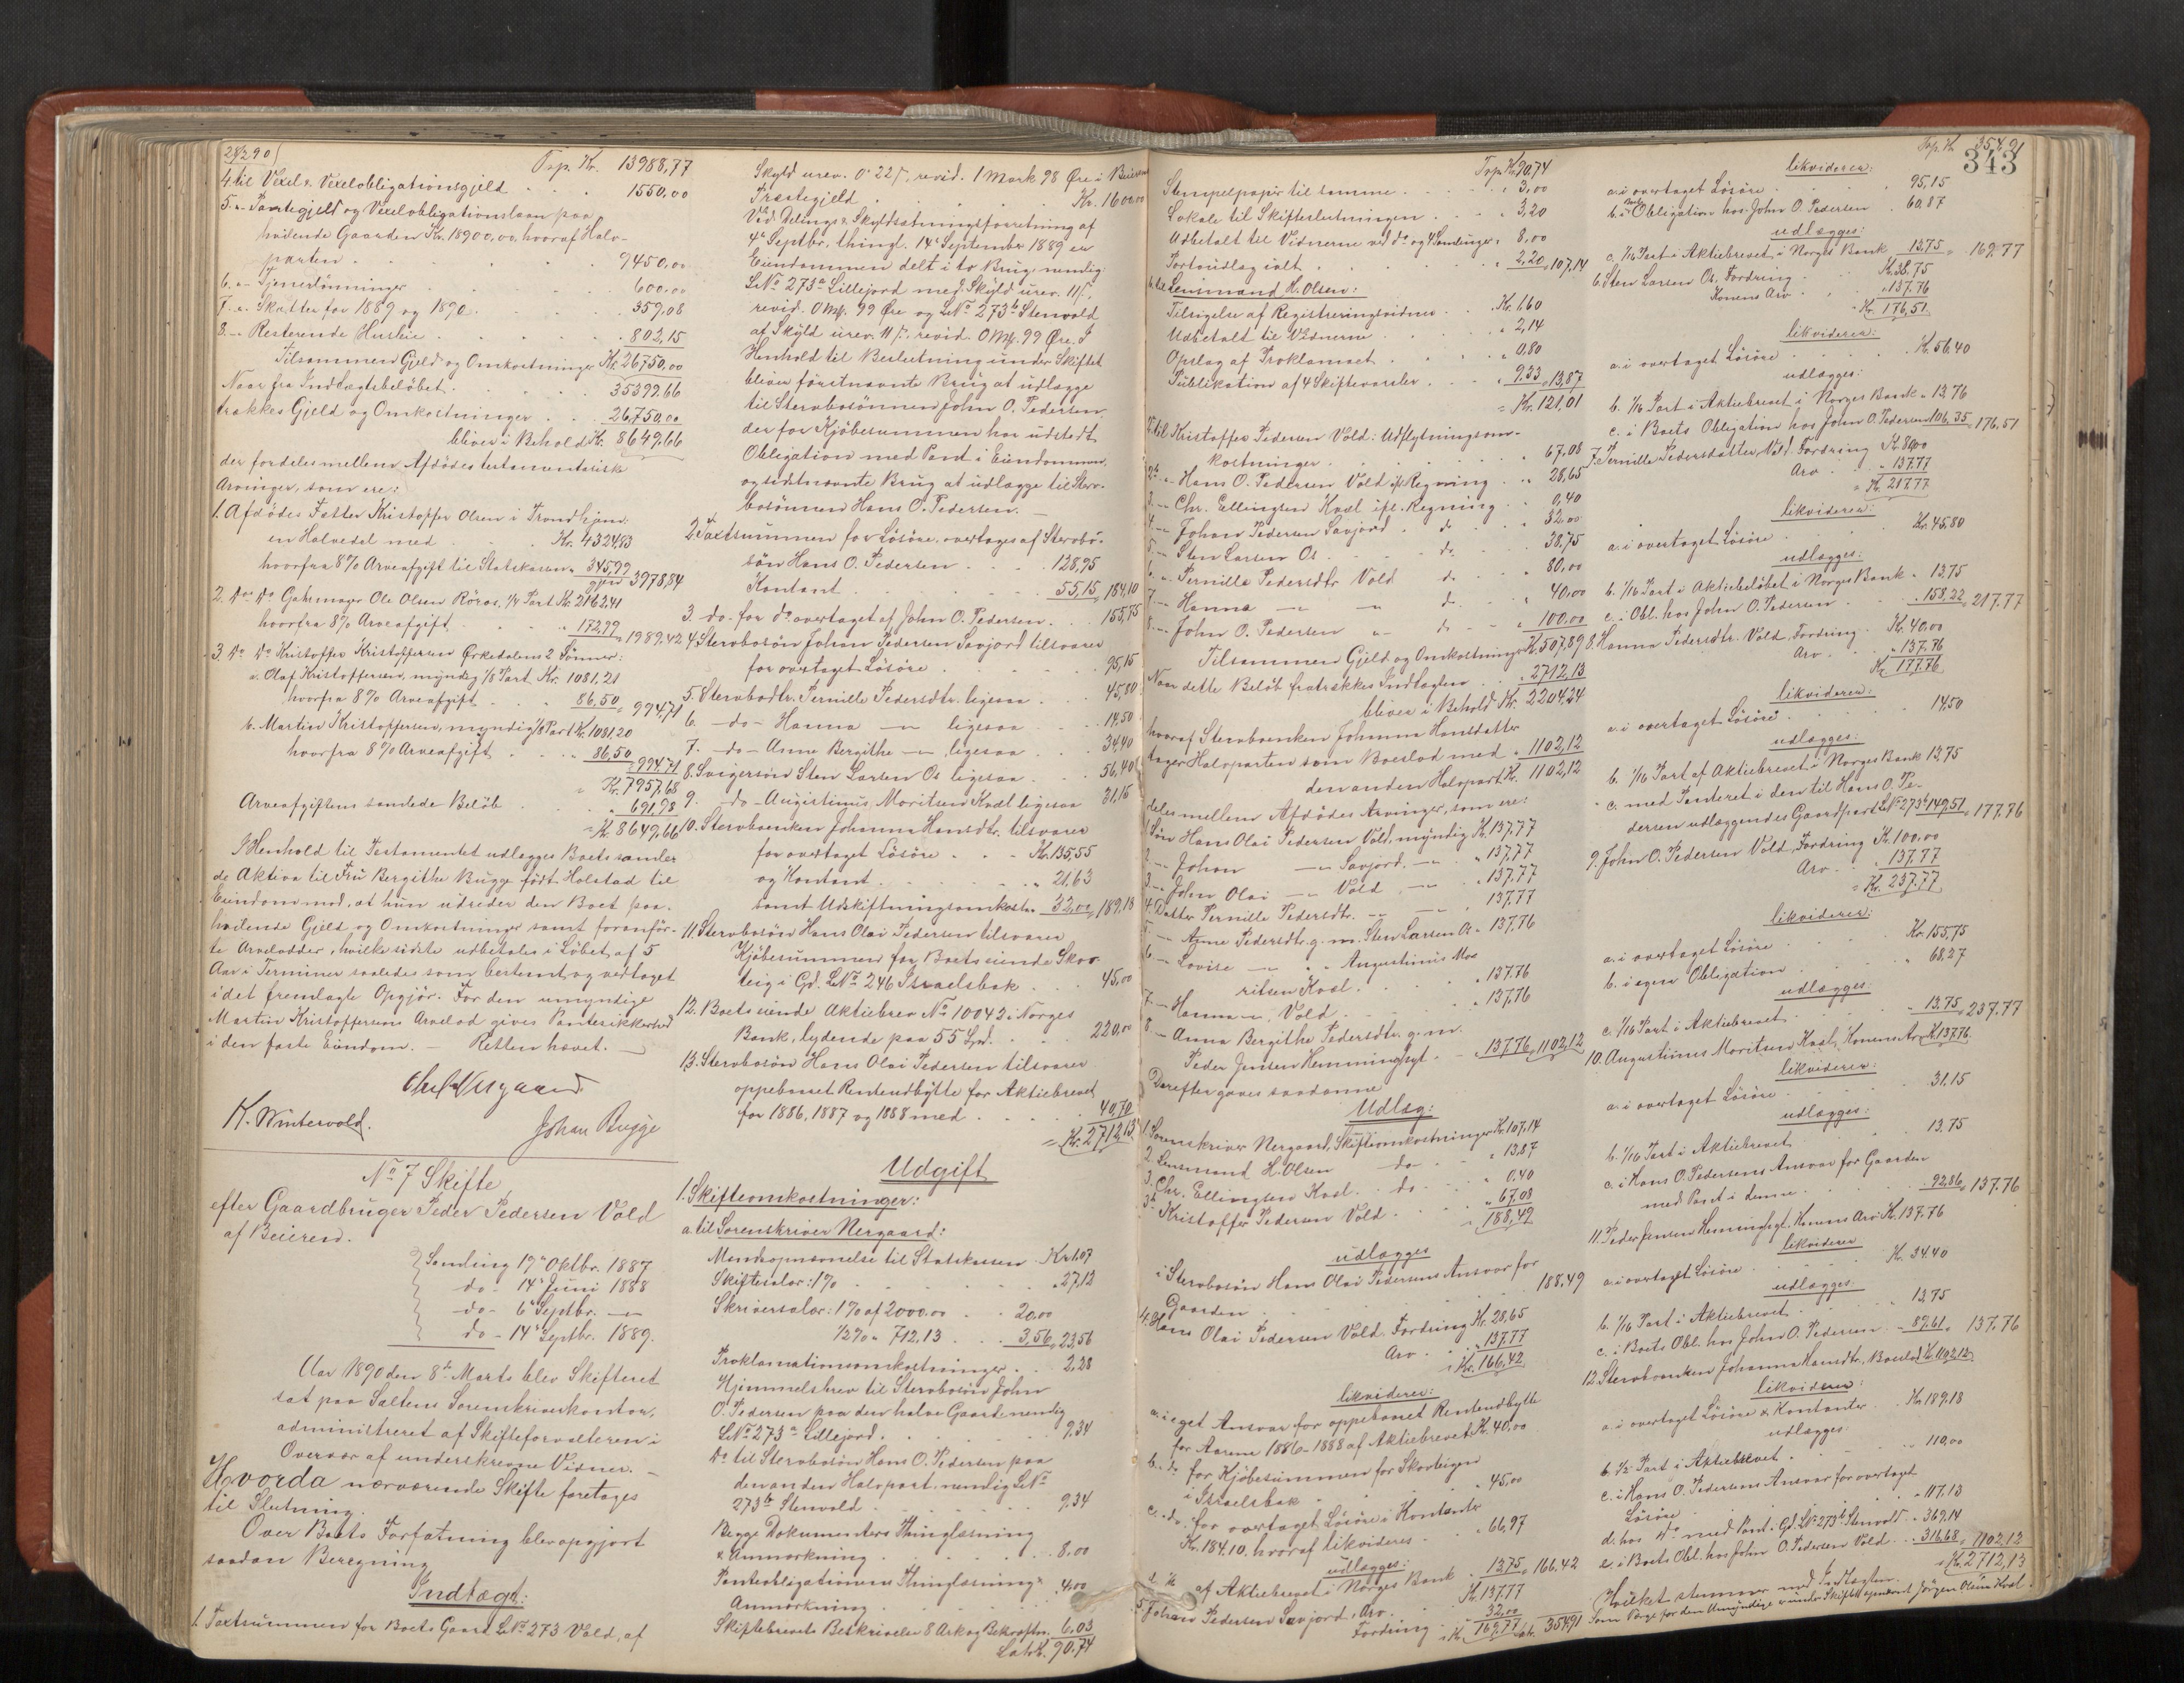 28/2 90
Trp. Kr. 13988,77
4. til Vexel & Vexelobligationsgjeld . . 1550,00
5. „ Pantegjeld og Vexelobligationslaan paa
hvilende Gaarden Kr. 18900,00, hvoraf Halv-
parten . . . 9450,00
6. „ Tjenerlønninger . . . 600,00
7. „ Skatter for 1889 og 1890 . . . 359,08
8. „ Resterende Husleie . . . 802,15
Tilsammen Gjeld og Omkostninger Kr. 26750,00
Naar fra Indtægtsbeløbet . . . 35399.66
trækkes Gjeld og Omkostninger . . 26750,00
bliver i Behold Kr. 8649,66
der fordeles mellem Afdødes testamentariske
Arvinger, som ere:
1. Afdødes Fætter Kristoffer Olsen i Trondhjem
en Halvedel med . . . Kr. 4324,83
hvorfra 8% Arveafgift til Statskassen „ 345,99
igjen 3978,84
2. Do Do Gahrmager Ole Olsen Röros, 1/4 Part Kr. 2162,41
hvorfra 8% Arveafgift . . . 172,99 = 1989,42
3. Do Do Kristoffer Kristoffersen Ørkedalens 2 Sønner:
a. Olaf Kristoffersen, myndig 1/8 Part Kr. 1081,21
hvorfra 8% Arveafgift . . . 86,50 = 994,71
b. Martin Kristoffersen, myndig 1/8 Part Kr. 1081.20
hvorfra 8% Arveafgift . . . 86,50 = 994,71
= Kr. 7957,68
Arveafgiftens samlede Beløb . . . 691,98
= Kr. 8649,66
I Henhold til Testamentet udlægges Boets samle-
de Aktiva til Fru Bergithe Bugge født Holstad til
Eiendom mod, at hun udreder den Boet paa-
hvilende Gjeld og Omkostninger samt foranför-
te Arvelodder, hvilke sidste udbetales i Løbet af 5
Aar i Terminer saaledes som bestemt og vedtaget
i det fremlagte Opgjör. For den umyndige
Martin Kristoffersens Arvelod gives Pantesikkerhed
i den faste Eiendom. — Retten hævet. —
K. Wintervold.
Johan Bugge
No 7 Skifte
efter Gaardbruger Peder Pedersen Vold
af Beieren.
Samling 19de Oktbr. 1887
do - 14de Juni 1888
do - 6te Septbr. —
do - 14de Septbr. 1889.
Aar 1890 den 8de Marts blev Skifteret
sat paa Saltens Sorenskriverkontor,
administreret af Skifteforvalteren i
Overvær af underskrevne Vidner. —
Hvorda nærværende Skifte foretages
til Slutning.
Over Boets Forfatning blev opgjort
saadan Beregning
Indtægt:
1. Taxtsummen for Boets Gaard LNo 273 Vold, af
Skyld urev. 0 . 22 /., revid. 1 Mark 98 Øre i Beieren
Præstegjeld . . . Kr. 1600.00
Ved Delings & Skyldsætningsforretning af
4de Septbr. thingl. 14de September 1889 er
Eiendommen delt i to Brug, nemlig:
LNo 273a Lillejord med Skyld urev. 11 /.,
revid. 0 Mk. 99 Øre og LNo 273b Stenvold
af Skyld urev. 11 /., revid. 0 Mk. 99 Øre. I
Henhold til Beslutning under Skiftet
bliver førstnævnte Brug at udlægge
til Stervbosønnen John O. Pedersen,
der for Kjøbesummen har udstedt
Obligation med Pant i Eiendommen,
og sidstnævnte Brug at udlægge til Sterv-
bosønnen Hans O. Pedersen. —
2. Taxtsummen for Løsøre, overtages af Stervbo-
søn Hans O. Pedersen . . . 128,95
Kontant . . . 55,15 = 184,10
3. do. for do overtaget af John O. Pedersen . . 155,75
4. Stervbosøn Johan Pedersen Savjord tilsvarer
for overtaget Løsøre . . . 95,15
5. Stervbodtr. Pernille Pedersdtr. ligesaa . . 45,80
6. - do - Hanna — „ — ligesaa . . 14,50
7. - do - Anne Bergithe — „ — ligesaa . . 34,40
8. Svigersøn Sten Larsen Os ligesaa . . 56,40
9. - do - Augustinus Moritsen Kvæl ligesaa 31,15
10. Stervboenken Johanna Hansdtr. tilsvarer
for overtaget Løsøre . . . Kr. 135,55
og Kontant . . . „ 21,63
samt Udskiftningsomkostn. 32,00 = 189,18
11. Stervbosøn Hans Olai Pedersen tilsvarer
Kjøbesummen for Boets eiende Skov-
teig i Gd. LNo 246 Israelsbak . . . 45,00
12. Boets eiende Aktiebrev No 10043 i Norges
Bank, lydende paa 55 Spd. . . . 220,00
13. Stervbosøn Hans Olai Pedersen tilsvarer
oppebaaret Renteudbytte for Aktiebrevet
for 1886, 1887 og 1888 med . . . 40,70
= Kr. 2712,13
Udgift
1. Skifteomkostninger:
a. til Sorenskriver Nergaard:
Mændsopnævnelse til Statskassen Kr. 1.07
Skiftesalær: 1% . . . „ 27,12
Skriversalær: 1% af 2000.00 . 20,00
1/2% „ 712.13 . . 3,56 „ 23,56
Proklamationsomkostninger . . 2,28
Hjemmelsbrev til Stervbosøn John
O. Pedersen paa den halve Gaard nemlig
LNo 273a Lillejord . . . 9,34
Do til Stervbosøn Hans O. Pedersen paa
den anden Halvpart, nemlig LNo
273b Stenvold . . . 9,34
Begge Dokumenters Thinglæsning
& Anmærkning . . . 8.00
Panteobligationens Thinglæsning &
Anmærkning . . . 4,00
Skiftebrevets Beskrivelse 8 Ark og Bekræftn. 6.03
Latr. K. 90.74
343
Trp. Kr. 90,74
Stempelpapir til samme . . . „ 3,00
Lokale til Skifteslutningen . . . „ 3,20
Udbetalt til Vidnerne ved do og 4 Samlinger „ 8,00
Portoudlæg ialt . . . „ 2,20 = 107,14
b. til Lensmand H. Olsen:
Tilsigelse af Registreringsvidner . . Kr. 1,60
Udbetalt til Vidnerne . . . „ 2,14
Opslag af Proklamaet . . . „ 0,80
Publikation af 4 Skiftevarsler . . . „ 9.33 = 13,87
= Kr. 121,01
2. til Kristoffer Pedersen Vold: Udflytningsom-
kostninger . . . 67,08
2b „ Hans O. Pedersen Vold ifl. Regning . . 28,65
3. „ Chr. Ellingsen Kvæl ifl. Regning . . 0,40
4. „ Johan Pedersen Savjord . do . . 32.00
5. „ Sten Larsen Os . . do . . 38.75
6. „ Pernille Pedersdtr. Vold do . . 80,00
7. „ Hanna — „ — „ do . . 40,00
8. „ John O. Pedersen „ do . . 100.00
Tilsammen Gjeld og Omkostninger Kr. 507,89
Naar dette Beløb fratrækkes Indtægten . . 2712,13
bliver i Behold Kr. 2204,24
hvoraf Stervboenken Johanna Hansdatter
tager Halvparten som Boeslod med . 1102,12
den anden Halvpart Kr. 1102,12
deles mellem Afdødes Arvinger, som ere:
1. Søn Hans Olai Pedersen Vold, myndig Kr. 137,77
2. „ Johan — „ — Savjord. „ . „ 137,77
3. „ John Olai — „ — Vold — „ — . 137,77
4. Datter Pernille Pedersdtr. — „ — 137,77
5. „ Anne Pedersdtr. g. m. Sten Larsen Os „ 137,76
6. „ Lovise — „ — „ Augustinus Mo-
ritsen Kvæl . . . 137,76
7. „ Hanna — „ — Vold . . . 137,76
8. „ Anna Bergithe Pedersdtr. g. m.
Peder Jensen Hemminghyt . . „ 137,76 = 1102,12
Derefter gøres saadanne
Udlæg:
1. Sorenskriver Nergaard, Skifteomkostninger Kr. 107,14
2. Lensmand H. Olsen do . . „ 13,87
3. Chr. Ellingsen Kvæl . do . . „ 0,40
3b Kristoffer Pedersen Vold . . . „ 67,08
= 188,49
udlægges
i Stervbosøn Hans Olai Pedersens Ansvar for
Gaarden . . . 188,49
4. Hans Olai Pedersen Vold. Fordring Kr. 28,65
Arv . . „ 137,77
= Kr. 166,42
likviderer:
a. i eget Ansvar for oppebaaret Renteudbytte
for Aarene 1886-1888 af Aktiebrevet Kr. 40,00
b. „ do for Kjøbesummen for Skovteigen
i Israelsbak . . . „ 45,00
c. „ do. for overtaget Løsøre i Kontanter
Kr. 184.10, hvoraf likvideres . . „ 66,97
udlægges:
af Aktiebrevet i Norges Bank . 13,75 = 166.42
5. Johan Pedersen Savjord, Arv . . Kr. 137,77
Fordring . . 32,00
= Kr. 169,77
Latr. 354,91
Trp. Kr. 354.91
likviderer:
a. i overtaget Løsøre . . . 95,15
b. i Boets Obligation hos John O. Pedersen . 60,87
udlægges:
c. 1/16 Part i Aktiebrevet i Norges Bank 13,75 = 169.77
6. Sten Larsen Os, Fordring . . Kr. 38.75
Konens Arv . . . „ 137.76
= Kr. 176,51
likviderer:
a. i overtaget Løsøre . . . Kr. 56.40
udlægges:
b. 1/16 Part i Aktiebrevet i Norges Bank „ 13,76
c. i Boets Obligation hos John O. Pedersen 106,35 = 176,51
7. Pernille Pedersdatter Vold. Fordring Kr. 80,00
Arv . . „ 137.77
= Kr. 217,77
likviderer:
a. i overtaget Løsøre . . . Kr. 45,80
udlægges:
b. 1/16 Part i Aktiebeløbet i Norges Bank „ 13,75
c. i Obl. hos John O. Pedersen . . „ 158,22 = 217.77
8. Hanna Pedersdtr. Vold, Fordring . Kr. 40,00
Arv . . „ 137.76
Kr. 177,76
likviderer:
a. i overtaget Løsøre . . . 14,50
udlægges:
b. 1/16 Part af Aktiebrevet i Norges Bank 13,75
c. med Panteret i den til Hans O. Pe-
dersen udlæggendes Gaardpart LNo 273b 149,51 = 177.76
9. John O. Pedersen Vold, Fordring Kr. 100,00
Arv . . „ 137.77
= Kr. 237,77
likviderer:
a. i overtaget Løsøre . . . Kr. 155,75
b. i egen Obligation . . . „ 68,27
udlægges:
c. 1/16 Part i Aktiebrevet . . . 13.75 = 237.77
10. Augustinus Moritsen Kvæl, Konens Arv Kr. 137,76
likviderer:
a. i overtaget Løsøre . . . 31.15
udlægges:
b. 1/16 Part i Aktiebrevet . . . 13.75
c. i Hans O. Pedersens Ansvar for Gaarden
med Pant i denne . . . 92,86 = 137.76
11. Peder Jensen Hemminghyt. Konens Arv Kr. 137.76
likviderer
a. i overtaget Løsøre . . . Kr. 34.40
udlægges:
b. 1/16 Part i Aktiebrevet . . . 13,75
c. i Boets Obl. hos John O. Pedersen . . 89,61 = 137.76
12. Stervboenken Johanna Hansdtr., Boeslod Kr. 1102,12
likviderer:
a. i overtaget Løsøre & Kontanter . . Kr. 189.18
udlægges
b. 1/2 Part i Aktiebrevet . . . „ 110,00
c. i Hans O. Pedersens Ansvar for overtaget
Løsøre . . . „ 117.13
d. hos do med Pant i Gd. LNo 273b Stenvold „ 369,14
e. i Boets Obl. hos John O. Pedersen Vold . . 316,68 = 1102,12
= Kr. 2712,13
Hvilket stemmer med Indtægten.
Som Værge for den Umyndige er under Skiftet opnævnt Jørgen Olsen Kvæl.